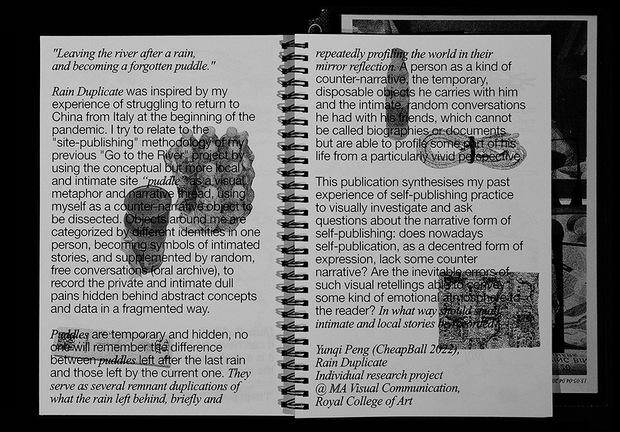 "Leaving the river after a rain,
and becoming a forgotten puddle."
Rain Duplicate was inspired by my
experience of struggling to return to
China from Italy at the beginning of the
pandemic. I try to relate to the
"site-publishing" methodology of my
previous "Go to the River" project by
using the conceptual but more local
and intimate site "puddle" as a visual
metaphor and narrative thread, using
myself as a counter-narrative object to
be dissected. Objects around me are
categorized by different identities in one
person, becoming symbols of intimated
stories, and supplemented by random,
free conversations (oral archive), to
record the private and intimate dull
pains hidden behind abstract concepts
and data in a fragmented way.
Puddles are temporary and hidden, no
one will remember the difference
between puddles left after the last rain
and those left by the current one. They
serve as several remnant duplications of
what the rain left behind, briefly and
repeatedly profiling the world in their
mirror reflection. A person as a kind of
counter-narrative, the temporary,
disposable objects he carries with him
and the intimate, random conversations
he had with his friends, which cannot
be called biographies or documents
but are able to profile some part of his
life from a particularly vivid perspective.
This publication synthesises my past
experience of self-publishing practice
to visually investigate and ask
questions about the narrative form of
self-publishing: does nowadays
self-publication, as a decentred form of
expression, lack some counter
narrative? Are the inevitable errors of
such visual retellings able to convey
some kind of emotional atmosphere to
the reader? In what way should small,
intimate and local stories be recorded?
Yunqi Peng (CheapBall 2022),
Rain Duplicate
Individual research project
@ MA Visual Communication,
Royal College of Art